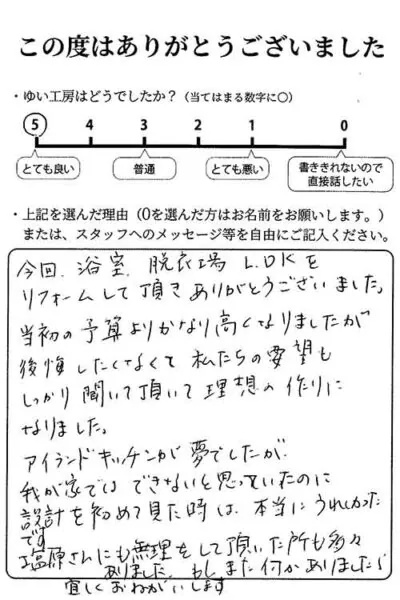 この度はありがとうございました
・ゆい工房はどうでしたか？（当てはまる数字に○）
5 4 3 2 1 0
とても良い 普通 とても悪い 書ききれないので
直接話したい
・上記を選んだ理由（0を選んだ方はお名前をお願いします。）
または、スタッフへのメッセージ等を自由にご記入ください。
今回、浴室、脱衣場 L.DKを
リフォームして頂きありがとうございました。
当初の予算よりかなり高くなりましたが
後悔したくなくて私たちの要望も
しっかり聞いて頂いて理想の作りに
なりました。
アイランドキッチンが夢でしたが、
我が家ではできないと思っていたのに
設計を初めて見た時は、本当にうれしかった
です
塩原さんにも無理をして頂いた所も多々
ありました、もしまた何かありましたら
宜しくおねがいします